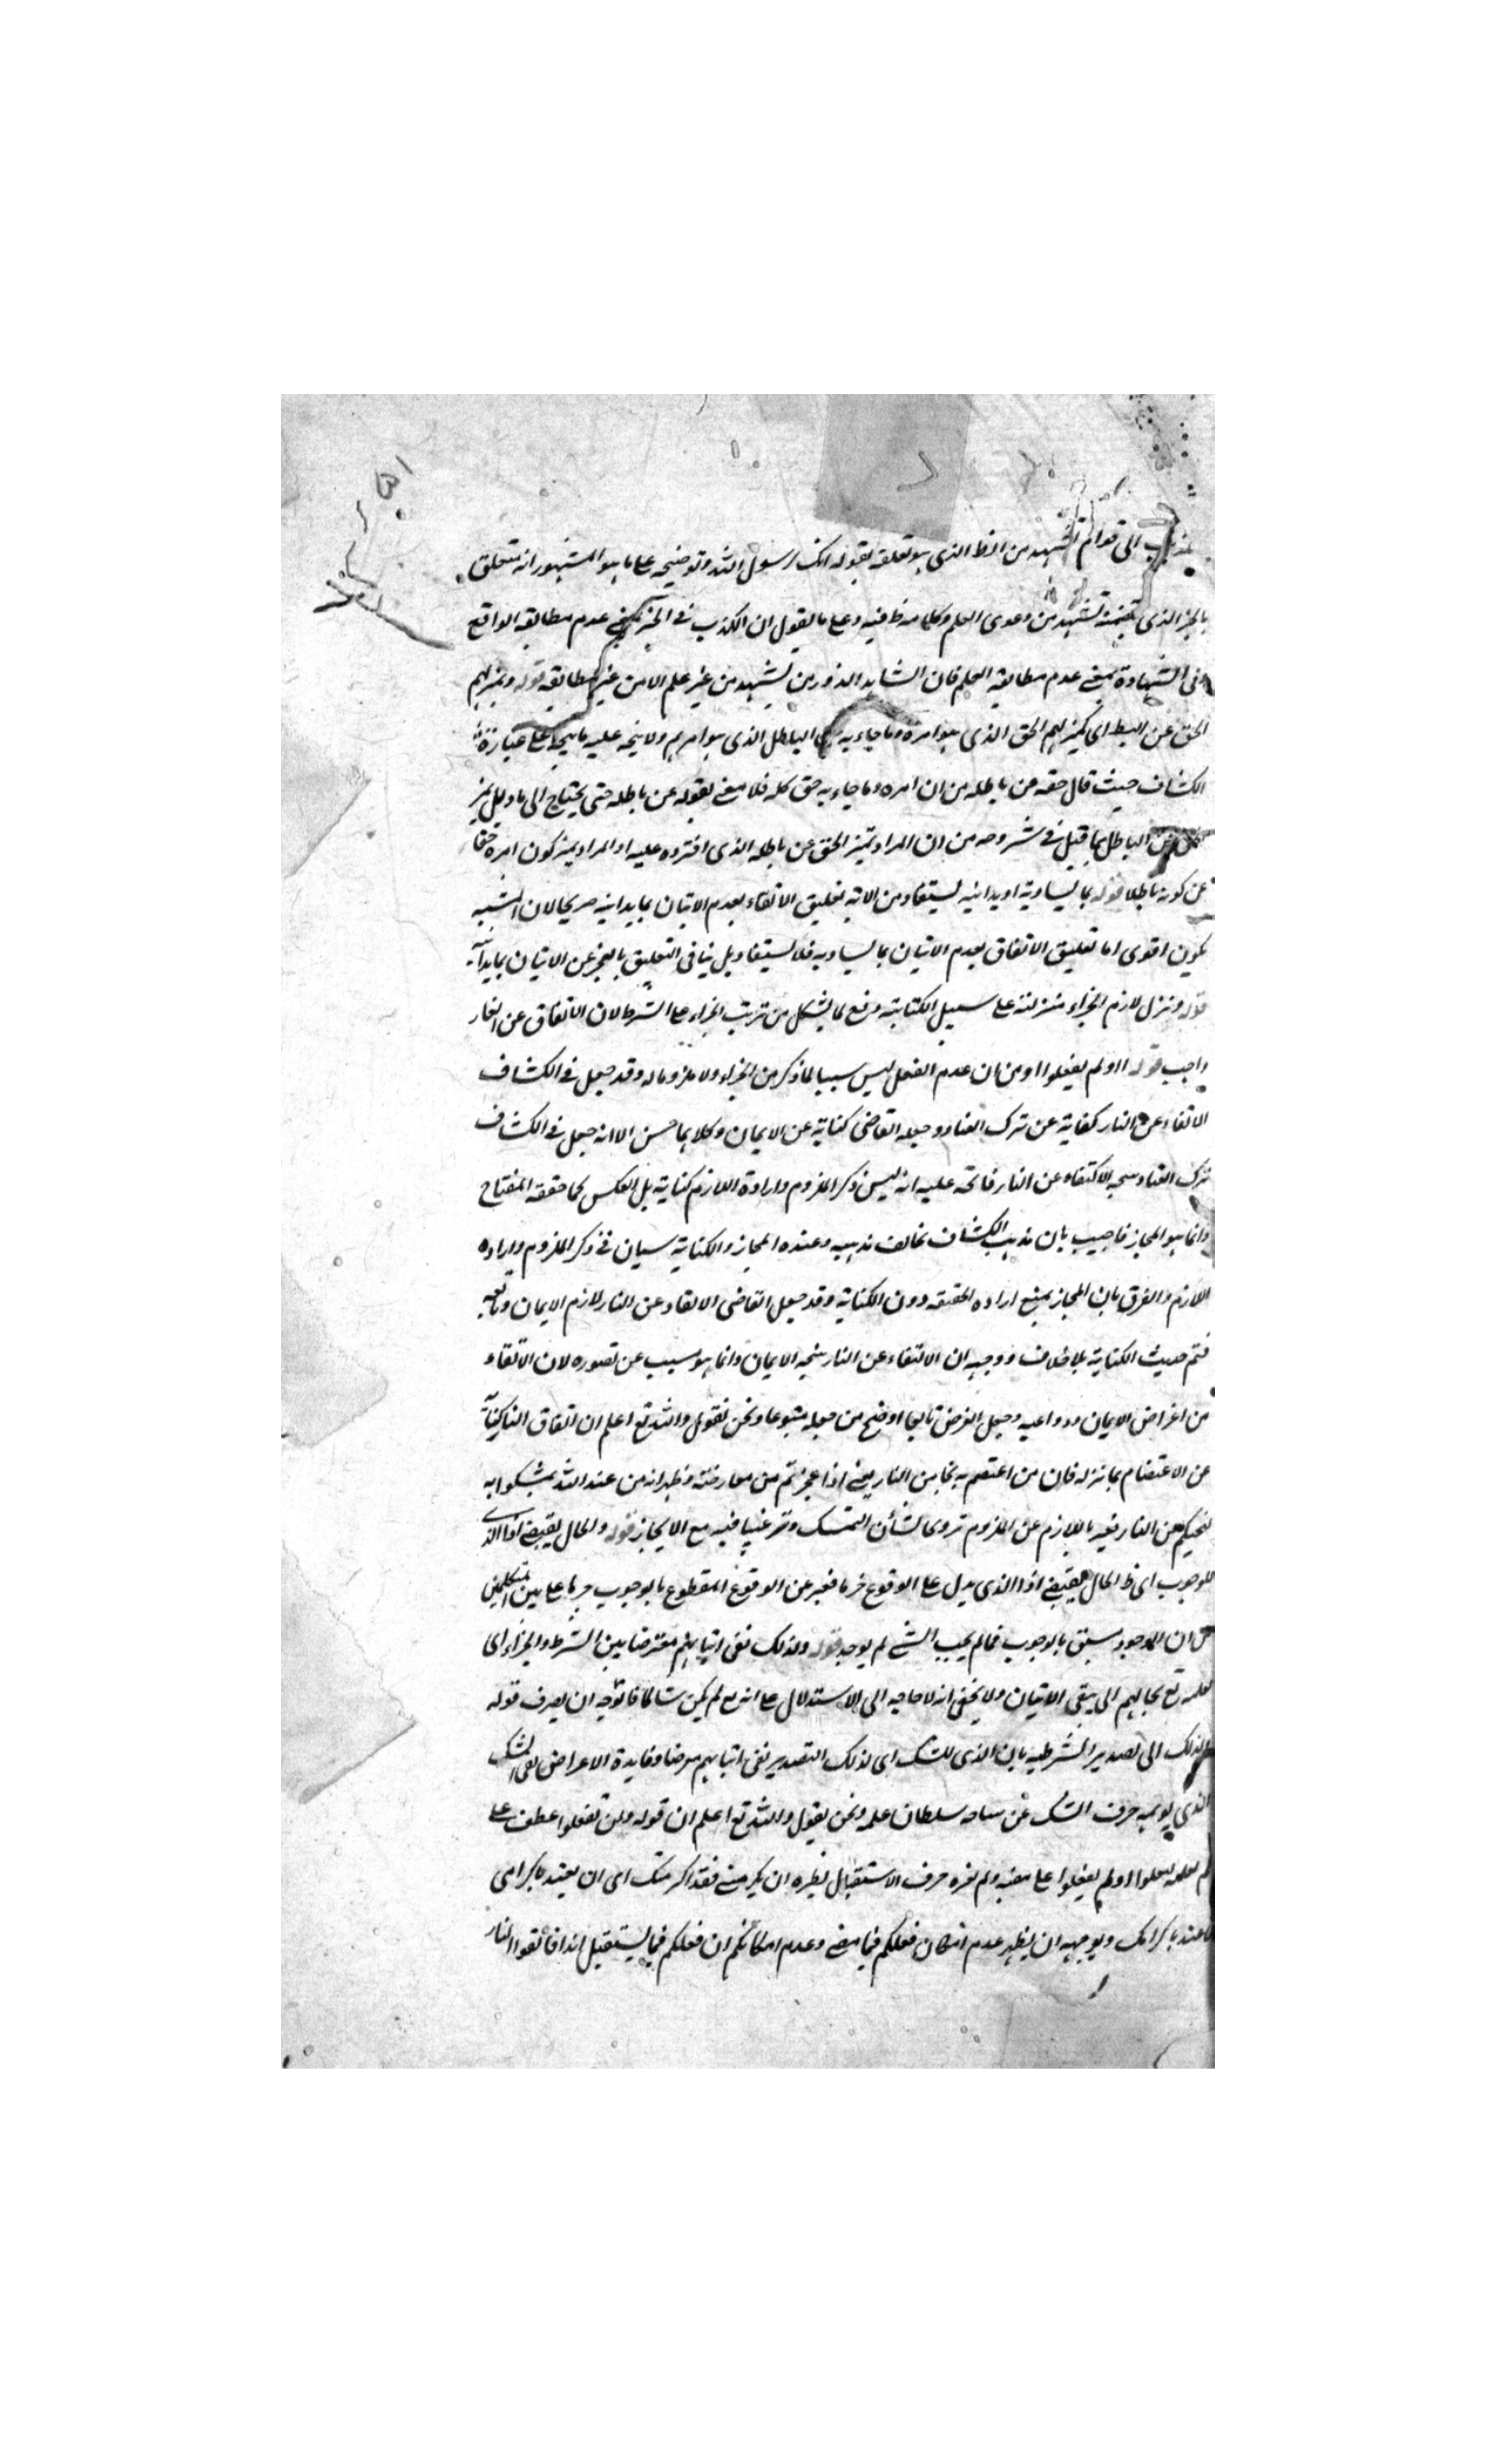 الى قوله نشهد من الظ الذى هو تعلقه بقوله انك رسول الله وتوضيحه على ما هو المشهور انه متعلق
بالخبر الذى تضمنه نشهد من دعوى العلم وكلامه ظ فيه وعلى ما يقول ان الكذب فى الخبر بمعنى عدم مطابقة الواقع
وفى الشهادة بمعنى عدم مطابقة العلم فان الشاهد الزور من يشهد من غير علم لا من غير مطابقة قوله وتميز لهم
الحق عن البط اى تميز لهم الحق الذى هو امره وما جاء به الباطل الذى هو امرهم ولا يتجه عليه ما يتجه على عبارة
الكشاف حيث قال حقه من باطله من ان امره وما جاء به حق كله فلا معنى لقوله عن باطله حتى يحتاج الى تاويل تميز
الباطل بما قيل فى شروحه من ان المراد تميز الحق عن باطله الذى افتروه عليه او المراد تميز كون امره حقا
عن كونه باطلا قوله بما يساويه او يدانيه يستفاد من الاية تعليق الاتقاء بعدم الاتيان بما يدانيه صريحا لان المشبه به
يكون اقوى اما تعليق الاتقاق بعدم الاتيان بما يساويه فلا يستفاد بل ينافى التعليق بالعجز عن الاتيان بما يدانيه
قوله ونزل لازم الجزاء منزلته على سبيل الكناية دفع لما يشكل من ترتب الجزاء على الشرط لان الاتقاق عن النار
واجب قوله او لم يفعلوا او من ان عدم الفعل ليس سببا لما ذكر من الجزاء ولا ملزوما له وقد جعل فى الكشاف
الاتقاء عن النار كناية عن ترك العناد وجعله القاضى كناية عن الايمان وكلاهما حسن الا انه جعل فى الكشاف
ترك العناد سجه الاكتفاء عن النار فاتجه عليه انه ليس ذكر الملزوم وارادة اللازم كناية بل العكس كما حققه المفتاح
وانما هو المجاز فاجيب بان مذهب الكشاف يخالف مذهبه وعنده المجاز والكناية سيان فى ذكر الملزوم وارادة
اللازم والفرق بان المجاز يمنع ارادة الحقيقة دون الكناية وقد جعل القاضى الاتقاء عن النار لازم الايمان وتابعه
فتم حديث الكناية بلا خلاف ووجهه ان الاتقاء عن النار نتيجة الايمان وانما هو سبب عن تصوره لان الاتقاء
من اغراض الايمان ودواعيه وجعل الغرض تابعا اوضح من جعله متبوعا ونحن نقول والله تع اعلم ان اتقاق النار كناية
عن الاعتصام بما نزله فان من اعتصم به نجا من النار يعنى اذا عجزتم من معارضته وظهر انه من عند الله تمسكوا به
لينجيكم من النار فعبر باللازم عن الملزوم ترويحا لشأن التمسك وترغيبا فيه مع الايجاز قوله والحال يقتضى اذا الذى
للوجوب اى ظ الحال يقتضى اذا الذى يدل على الوقوع جزما فعبر عن الوقوع المقطوع بالوجوب جريا على بين المتكلمين
من ان الموجود سبق بالوجوب فما لم يجب الشئ لم يوجد قوله ولذلك نفى اتيانهم معترضا بين الشرط والجزاء اى
لعلمه تع بحالهم الى بنفى الاتيان ولا يخفى انه لا حاجه الى الاستدلال على انه تع لم يكن شاكا فالوجه ان يصرف قوله
ولذلك الى تصدير الشرطيه بان الذى للشك اى لذلك التصدير نفى اتيانهم معترضا وفايدة الاعراض نفى الشك
الذى يوهمه حرف الشك عن ساحه سلطان علمه ونحن نقول والله تع اعلم ان قوله ولن تفعلوا عطف على
لم يفعلوا او لم يفعلوا على معنيه ولم يغره حرف الاستقبال نظيره ان يكرمنى فقد اكرمتك اى ان يعتد باكرامى
فاعتد باكرامك ويوجهه ان يظهر عدم امكان فعلكم فيما مضى وعدم امكانكم ان فعلكم فيما يستقبل ابدا فاتقوا النار